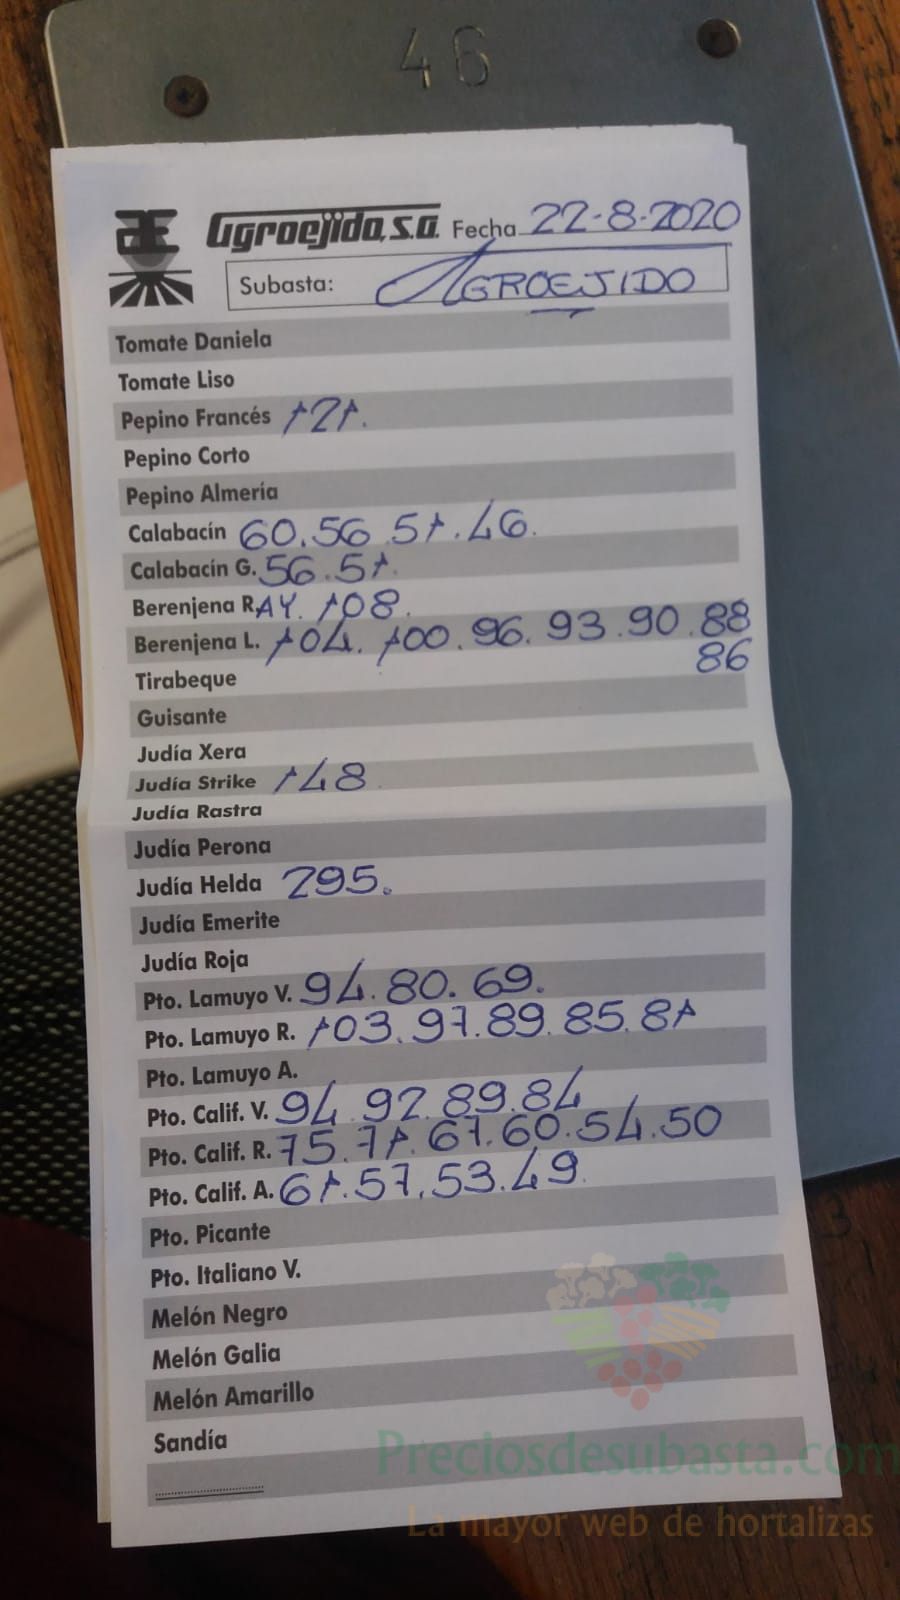 46
Agroejido, S.A. Fecha 22-8-2020
Subasta: AGROEJIDO
Tomate Daniela
Tomate Liso
Pepino Francés 121.
Pepino Corto
Pepino Almería
Calabacín 60.56.51.46.
Calabacín G. 56.51.
Berenjena R.AY. 108.
Berenjena L. 104. 100.96.93.90.88
86
Tirabeque
Guisante
Judía Xera
Judía Strike 148
Judía Rastra
Judía Perona
Judía Helda 295.
Judía Emerite
Judía Roja
Pto. Lamuyo V. 94.80.69.
Pto. Lamuyo R. 103.97.89.85.81
Pto. Lamuyo A.
Pto. Calif. V. 94.92.89.84
Pto. Calif. R. 75.71.67.60.54.50
Pto. Calif. A. 61.57.53.49.
Pto. Picante
Pto. Italiano V.
Melón Negro
Melón Galia
Melón Amarillo
Sandía
Preciosdesubasta.com
La mayor web de hortalizas